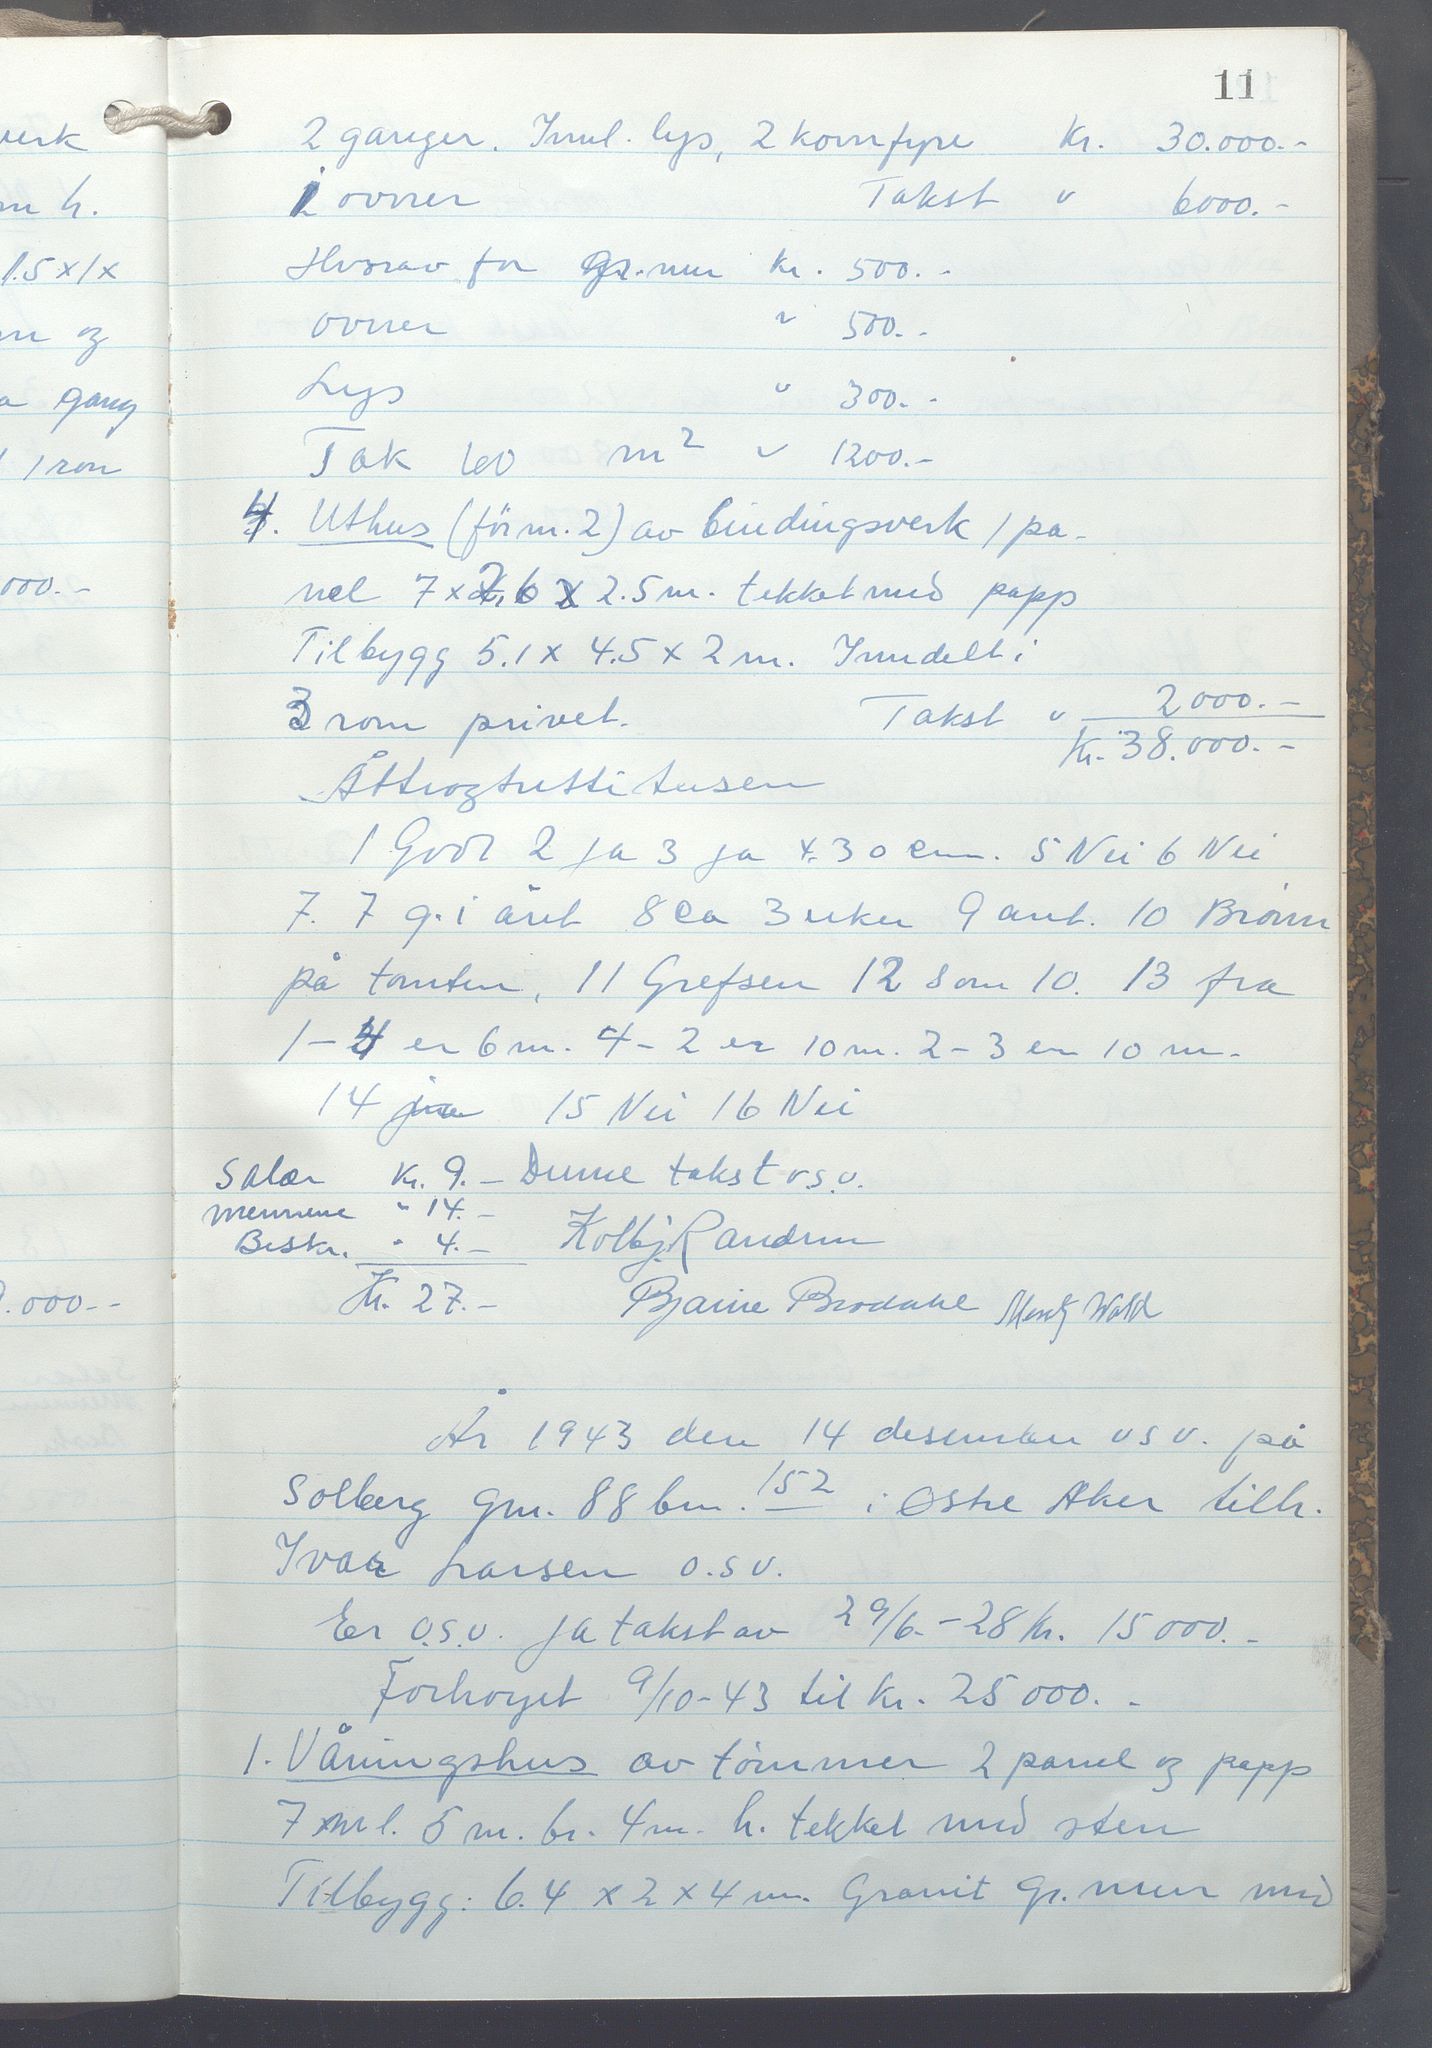 11
verk
m h.
1.5 x 1 x
m og
gang
1 rom
000.-
000.-
2 ganger. Innl. lys, 2 komfyre Kr. 30.000.-
ovner Takst " 6000.-
Hvorav for gr.mur kr. 500.-
ovner " 500.-
Lys " 300.-
Tak 60 m2 " 1200.-
4. Uthus (før m. 2) av bindingsverk 1 pa-
nel 7 x 2,6 x 2.5 m. tekket med papp
Tilbygg 5.1 x 4.5 x 2 m. Inndelt i
3 rom privet. Takst " 2000.-
Kr. 38.000.-
Åttrogtrettitusen
1 Godt 2 ja 3 ja 4. 30 cm. 5 Nei 6 Nei
7. 7 g. i året 8 ca 3 uker 9 ant. 10 Brønn
på tomten, 11 Grefsen 12 som 10. 13 fra
1-4 er 6 m. 4-2 er 10 m. 2-3 er 10 m.
14 ja 15 Nei 16 Nei
Salær Kr. 9.- Denne takst o.s.v.
mennene " 14.-
Beskr. " 4.- Kolbj. Randrum
Kr. 27.- Bjarne Brodahl Wold
År 1943 den 14 desember o s v. på
Solberg gnr. 88 bnr. 152 i Østre Aker tilh.
Ivar Larsen o.s v.
Er o.s.v. ja takst av 29/6.-28 kr. 15 000.-
Forhøyet 9/10-43 til kr. 25 000.-
1. Våningshus av tømmer 2 panel og papp
7 m l. 5 m. br. 4 m. h. tekket med sten
Tilbygg: 6.4 x 2 x 4 m. Granit gr.mur med